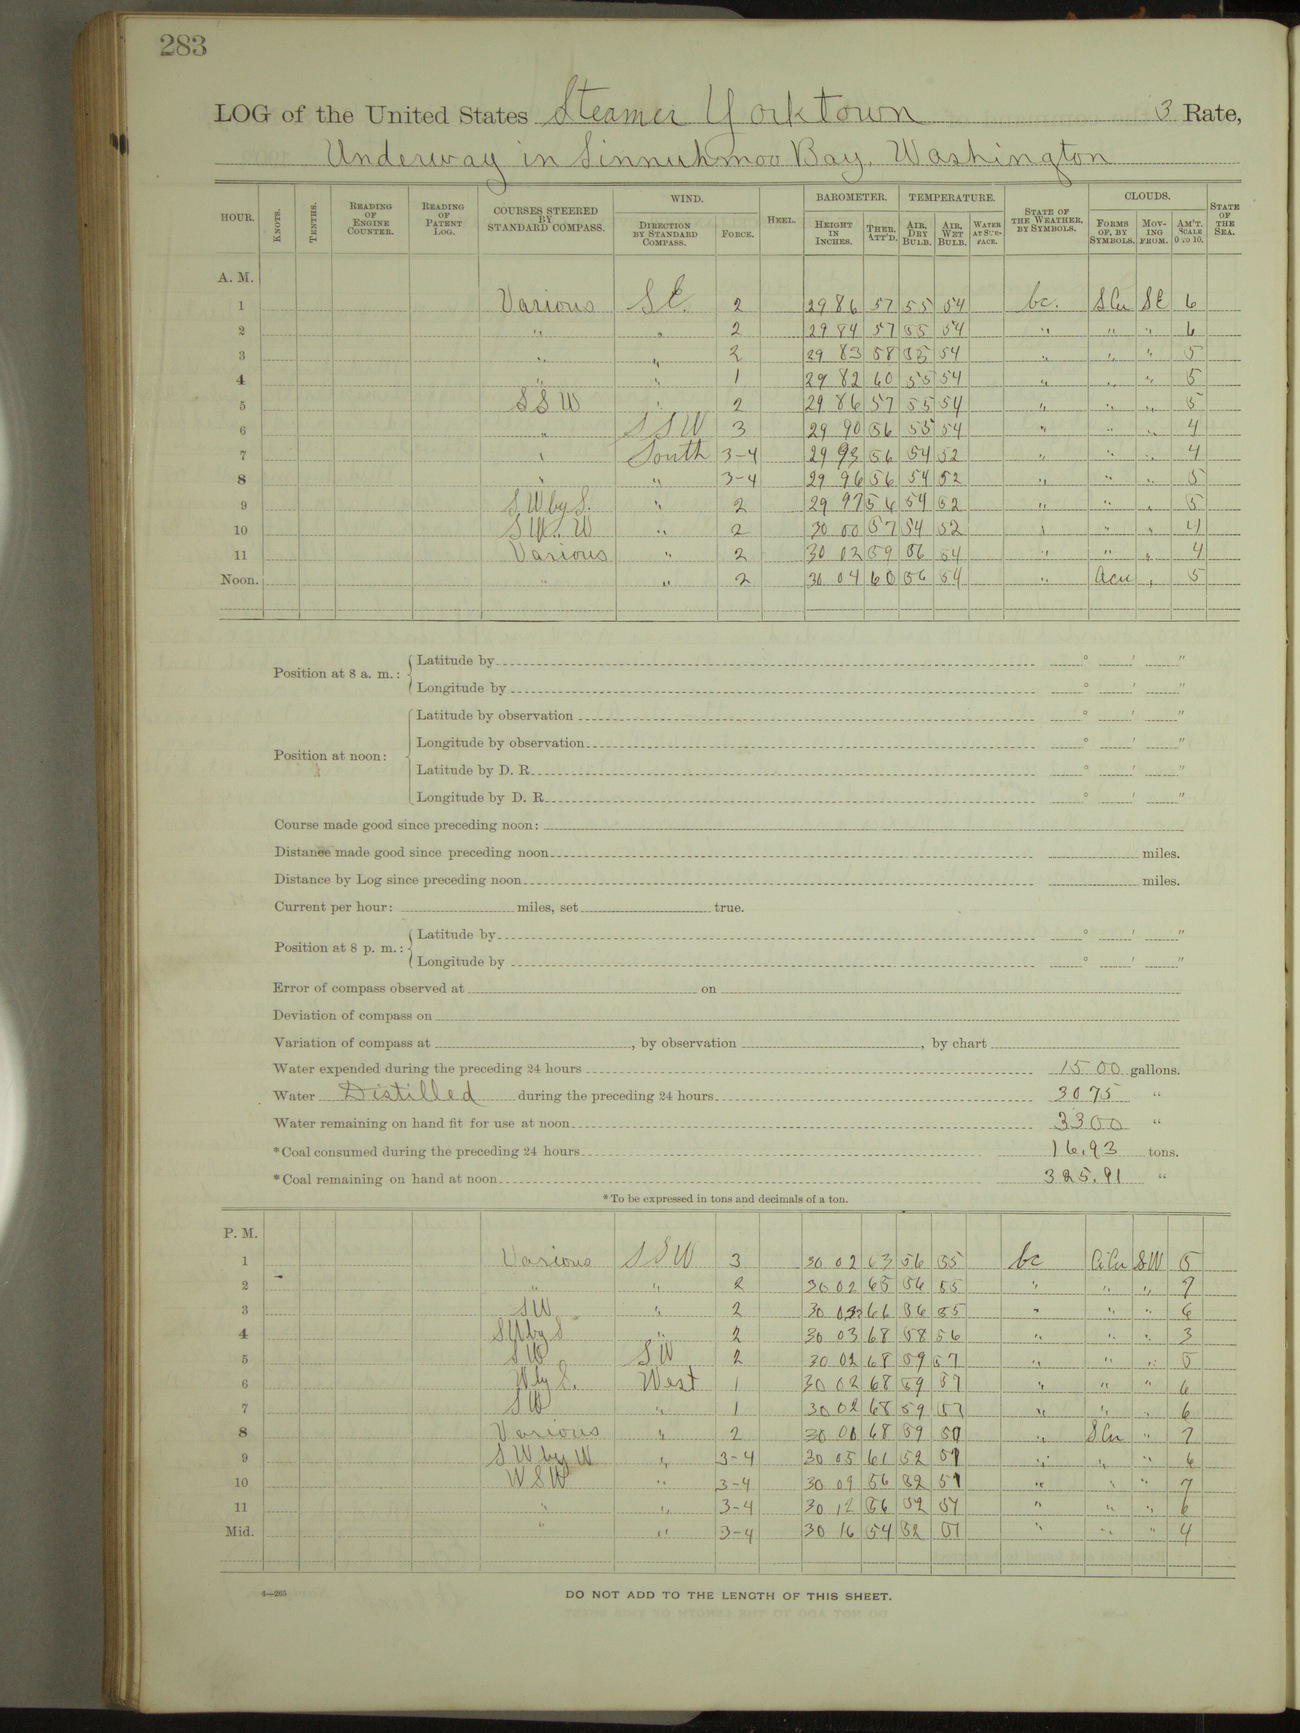 283
LOG of the United States Steamer Yorktown 3 Rate,
Underway in Sinnuhmoo Bay, Washington
HOUR. KNOTS. TENTHS. READING OF ENGINE COUNTER. READING OF PATENT LOG. COURSES STEERED BY STANDARD COMPASS. WIND. DIRECTION BY STANDARD COMPASS. FORCE. HEEL. BAROMETER. HEIGHT IN INCHES. THER. ATT'D. TEMPERATURE. AIR, DRY BULB. AIR, WET BULB. WATER AT SURFACE. STATE OF THE WEATHER, BY SYMBOLS. CLOUDS. FORMS OF, BY SYMBOLS. MOVING FROM. AM'T. SCALE 0 TO 10. STATE OF THE SEA.
A. M.
1 Various SE. 2 29 86 57 55 54 bc. SCu SE 6
2 " " 2 29 84 57 55 54 " " " 6
3 " " 2 29 83 58 55 54 " " " 5
4 " " 1 29 82 60 55 54 " " " 5
5 SSW " 2 29 86 57 55 54 " " " 5
6 " SSW 3 29 90 56 55 54 " " " 4
7 " South 3-4 29 93 56 54 52 " " " 4
8 " " 3-4 29 96 56 54 52 " " " 5
9 SW by S. " 2 29 97 56 54 52 " " " 5
10 " 2 30 00 57 54 52 " " " 4
11 Various " 2 30 02 59 56 54 " " " 4
Noon. " " 2 30 04 60 56 54 " Acu " 5
Position at 8 a. m.: Latitude by ° ' "
Longitude by ° ' "
Position at noon: Latitude by observation ° ' "
Longitude by observation ° ' "
Latitude by D. R. ° ' "
Longitude by D. R. ° ' "
Course made good since preceding noon:
Distance made good since preceding noon miles.
Distance by Log since preceding noon miles.
Current per hour: miles, set true.
Position at 8 p. m.: Latitude by ° ' "
Longitude by ° ' "
Error of compass observed at on
Deviation of compass on
Variation of compass at , by observation , by chart
Water expended during the preceding 24 hours 1500 gallons.
Water Distilled during the preceding 24 hours 3075 "
Water remaining on hand fit for use at noon 3300 "
*Coal consumed during the preceding 24 hours 16.93 tons.
*Coal remaining on hand at noon 325.91 "
*To be expressed in tons and decimals of a ton.
P. M.
1 Various SSW 3 30 02 63 56 55 bc CiCu SW 5
2 " " 2 30 02 65 56 55 " " " 7
3 SW " 2 30 66 56 55 " " " 6
4 SW by S " 2 30 03 68 58 56 " " " 3
5 SW SW 2 30 02 68 59 57 " " " 5
6 W by S. West 1 30 02 68 59 57 " " " 6
7 SW " 1 30 02 68 59 " " " 6
8 Various " 2 30 00 68 59 " SCu " 7
9 SW by W " 3-4 30 05 61 52 51 " " " 6
10 WSW " 3-4 30 09 56 52 51 " " " 7
11 " " 3-4 30 12 56 52 51 " " " 6
Mid. " " 3-4 30 16 54 52 51 " " " 4
4—265
DO NOT ADD TO THE LENGTH OF THIS SHEET.